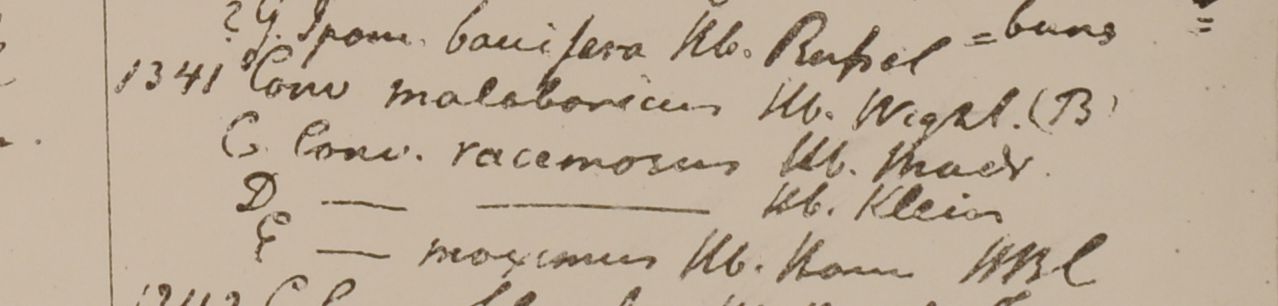 ? G. Ipom. baccifera Hb. Russel =
1341 Conv malabaricus Hb. Wight. (B)
C. Conv. racemosus Hb. Madr.
D — — Hb. Klein
E — maximus Hb. Ham